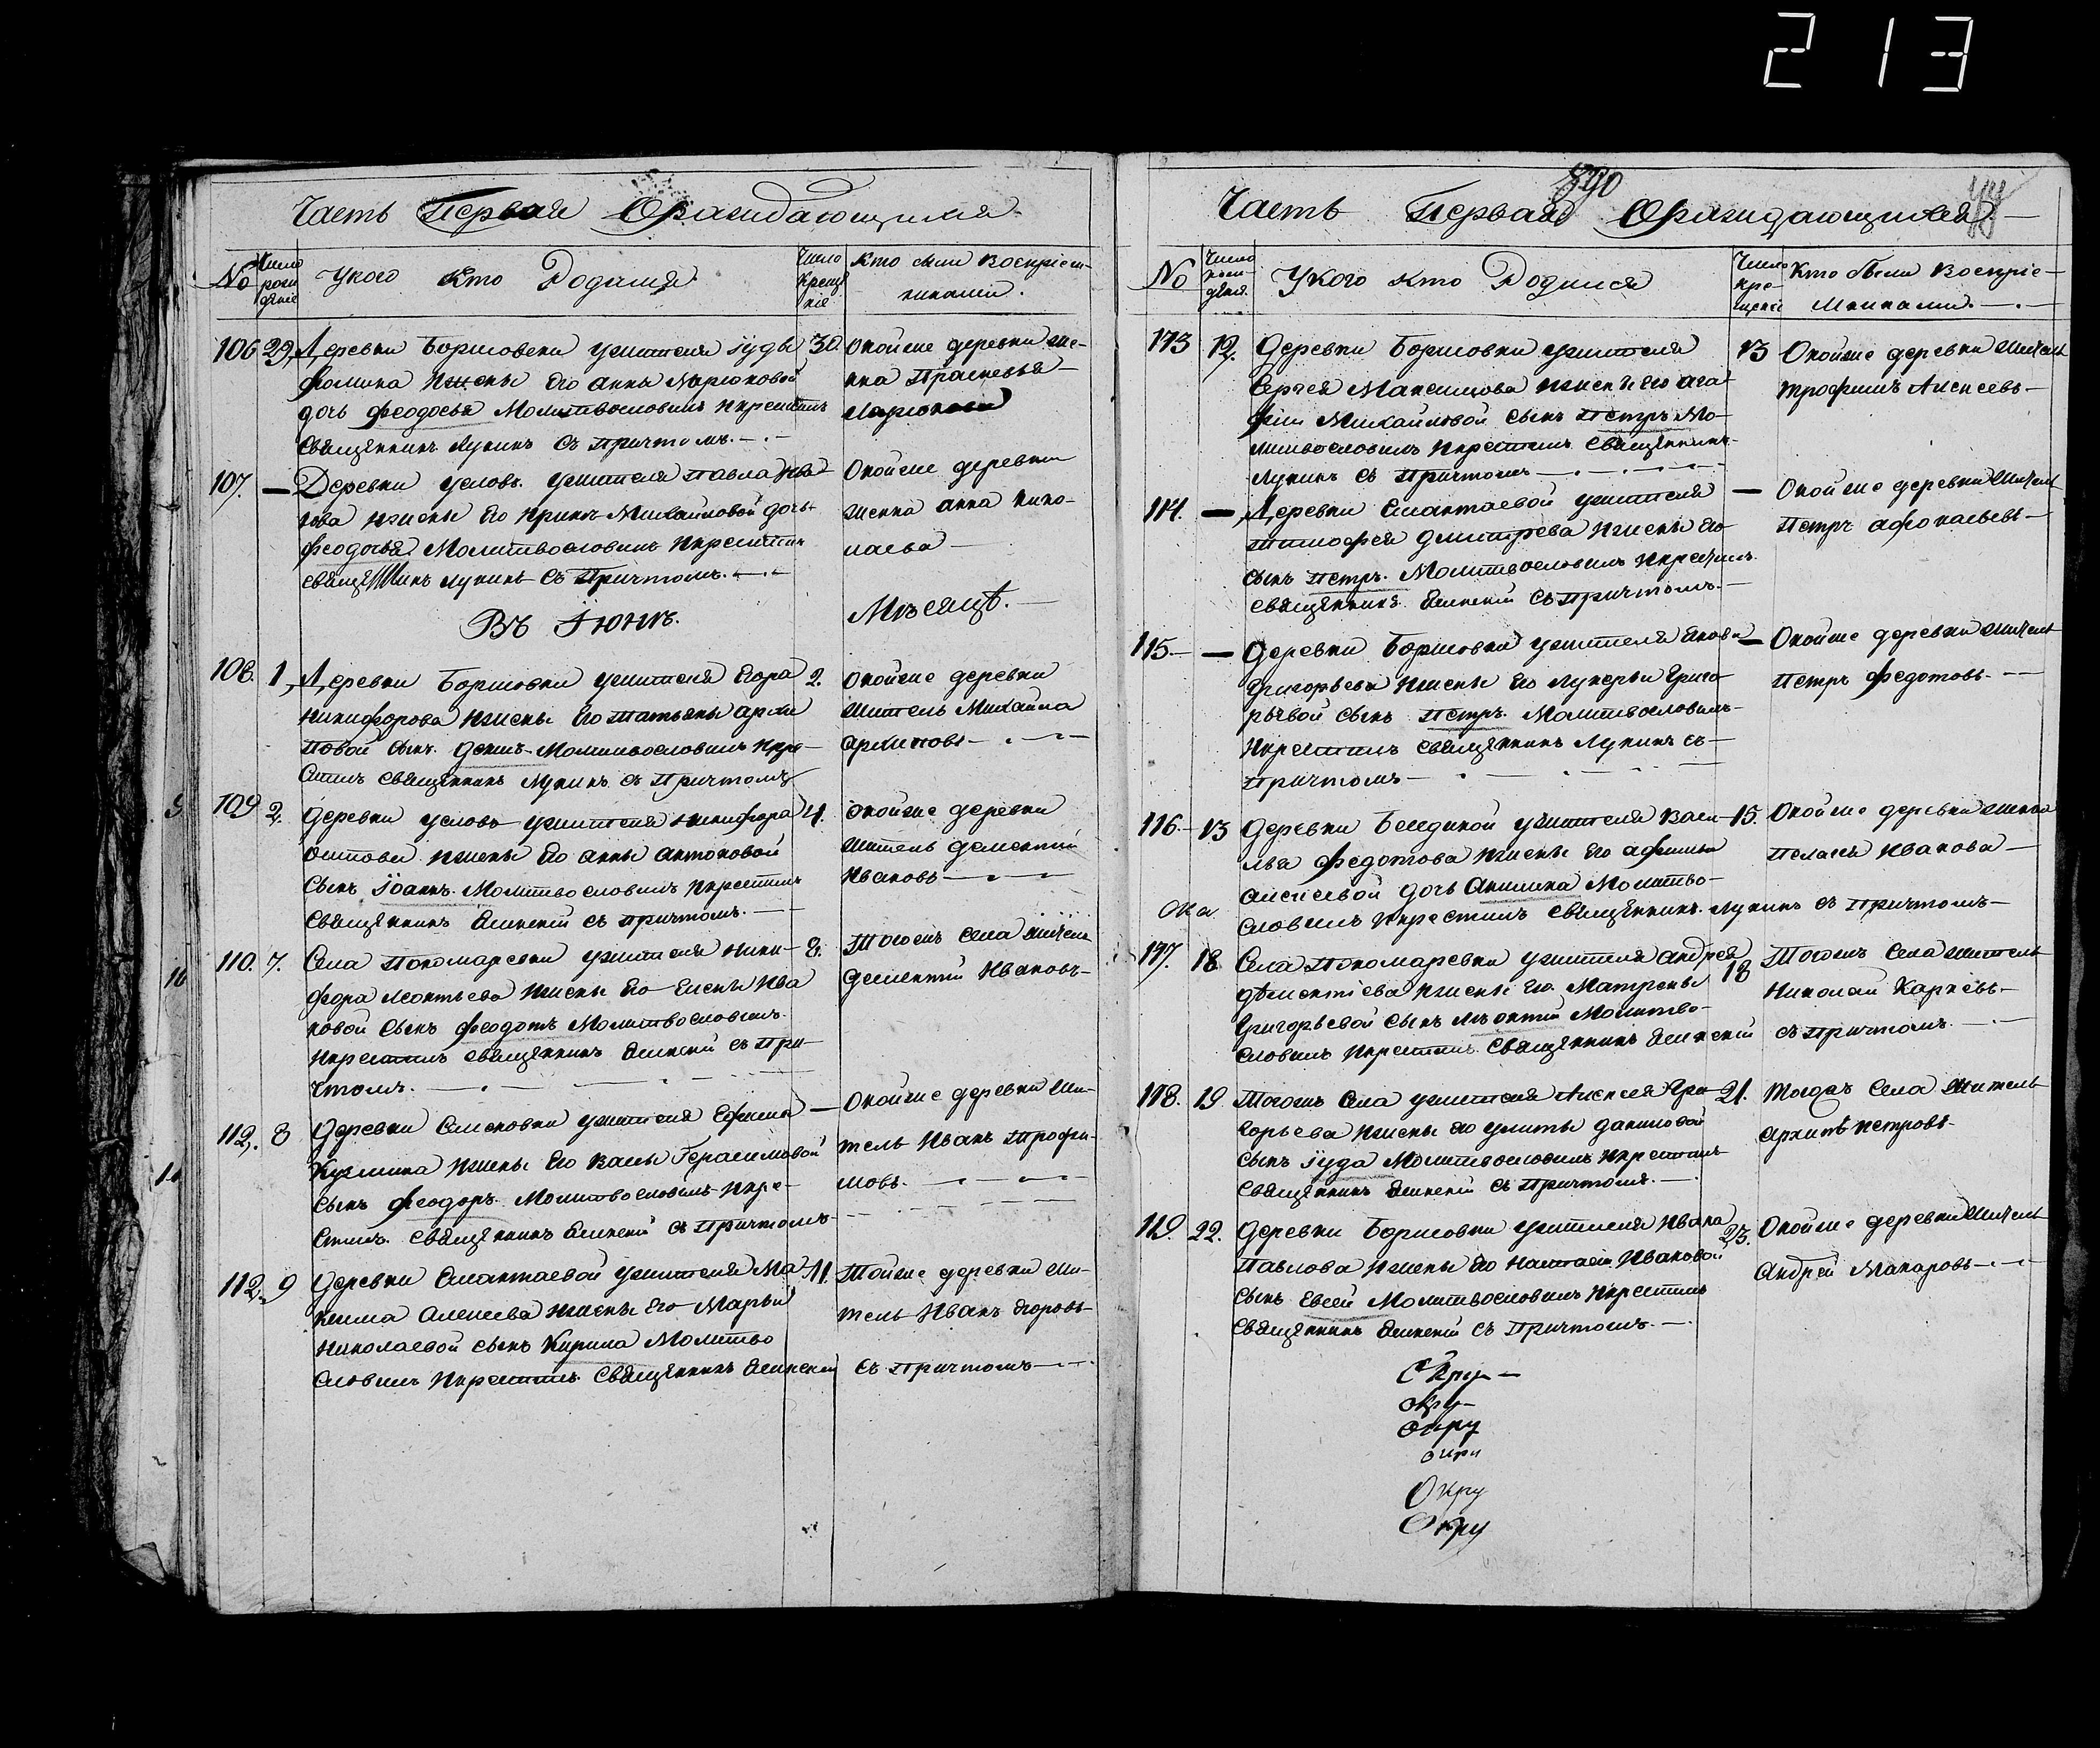 213
Часть Первая Ораждающихся.
№
Число рождения
У кого Кто Родился
Число крещения
Кто были Воспріемниками.
106 29, Деревни Борисовки у жителя Іуды
Фомина и жены Его анны Ларіоновой
дочь феодосья Молитвословилъ и крестилъ
Священникъ Лукинъ съ Причтомъ.
30. Онойже деревни же-
нка Прасковья
Ларіонова
107. — Деревни услов. жителя Павла Ива
нова и жены Его Ирины Михайловой дочь
феодосья Молитвословилъ и крестилъ
священникъ Лукинъ Съ Причтомъ.
Онойже деревни
женка анна Нико-
лаева
Въ Іюнѣ. Мѣсяцѣ.
108. 1, Деревни Борисовки у жителя Егора
Никифорова и жены Его Татьяны архи
повой сынъ Молитвословилъ и кре-
стилъ священникъ Лукинъ съ Причтомъ
2. Онойже деревни
житель Михайла
архиповъ
109 2. Деревни услов у жителя Никифора
и жены Его анны антоновой
Сынъ Іоаннъ. Молитвословилъ и крестилъ
Священникъ съ причтомъ.
4. онойже деревни
житель дементій
Ивановъ
110. 7. Села Пономаревки у жителя Ники-
фора Леонтьева и жены Его Елены Ива
новой Сынъ феодотъ Молитвословилъ
и крестилъ священникъ съ При-
чтомъ.
8. Тогожъ села житель
дементій Ивановъ
112. 8 Деревни у жителя Ефима
Кузмина и жены Его Герасимовой
Сынъ феодоръ. Молитвословилъ и кре-
стилъ. Священникъ съ Причтомъ
— Онойже деревни жи-
тель Иванъ Трофи-
мовъ.
112. 9 Деревни Емантаевой у жителя Ма
ксима Алексеева и жены Его Марьи
Николаевой сынъ Кирила Молитво
словилъ и крестилъ Священникъ съ Причтомъ
11. Тойже деревни жи-
тель Иванъ Егоровъ
590
Часть Первая Ораждающихся.
№
Число рожденія.
У кого Кто Родился
Число крещенія
Кто были Воспріемниками.
113 12. Деревни Борисовки у жителя
Сергея Максимова и жены Его ага
фіи Михайловой Сынъ Петръ Мо-
литвословилъ и крестилъ Священникъ
Лукинъ съ Причтомъ
13 Онойже деревни житель
трофимъ Алексеевъ
114. — Деревни Емантаевой у жителя
Тимофея дмитрева и жены Его
сынъ Петръ. Молитвословилъ и крестилъ
священникъ съ Причтомъ.
— Онойже деревни житель
Петръ афонасьевъ
115 — Деревни Борисовки у жителя Якова
Григорьева и жены Его Лукерьи Григо
рьевой сынъ Петръ. Молитвословилъ
и крестилъ священникъ Лукинъ съ
Причтомъ
— Онойже деревни житель
Петръ федотовъ.
116. 13 Деревни у жителя Васи-
лья федотова и жены Его афимьи
алексеевой дочь акилина Молитво-
словилъ и крестилъ священникъ Лукинъ съ Причтомъ
15. Онойже деревни женка
Пелагея Иванова
117. 18 Села Пономаревки у жителя андрея
дѣментіева и жены Его Матрены
Григорьевой сынъ леонтій Молитво-
словилъ и крестилъ Священникъ съ Причтомъ.
18 Тогожъ Села житель
Николай Карнѣевъ
118. 19 Тогожъ Села у жителя Алексея Гри
горьева и жены его улиты даниловой
сынъ Іуда Молитвословилъ и крестилъ
Священникъ съ Причтомъ.
21. Тогожъ Села житель
архипъ петровъ
119. 22. Деревни Борисовки у жителя Ивана
Павлова и жены Его Настасіи Ивановой
Сынъ Евсей Молитвословилъ и крестилъ
Священникъ съ Причтомъ.
23. Онойже деревни житель
Андрей Макаровъ
Окру
окру
окру
окру
Окру